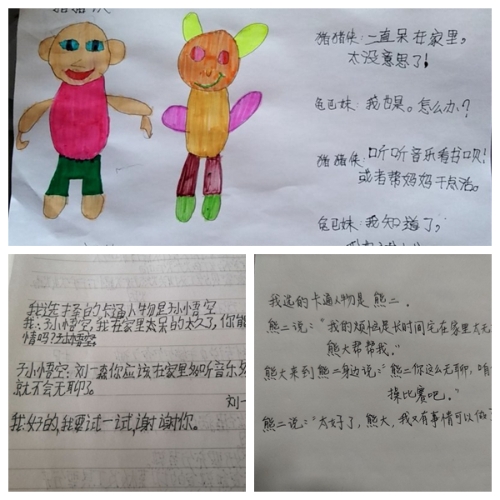 猪猪侠
猪猪侠：一直呆在家里，
太没意思了！
我也是。怎么办？
猪猪侠：听听音乐看书呗！
或者帮妈妈干点活。
我知道了，
我选择的卡通人物是孙小悟空
我：孙小悟空，我在家里太呆的太久了，你能
情吗？孙小悟空。
孙小悟空：刘一森你应该在家里多听音乐
就不会无聊了。
刘一
我：好的，我要试一试，谢谢你。
我选的卡通人物是熊二。
熊二说：“我的烦恼是长时间宅在家里太无
熊大帮帮我。”
熊大来到熊二身边说：“熊二你这么无聊，咱
操比赛吧。”
熊二说：“太好了，熊大，我又有事情可以做了